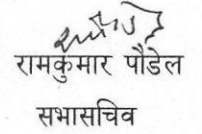 रामकुमार पौडेल
सभासचिव